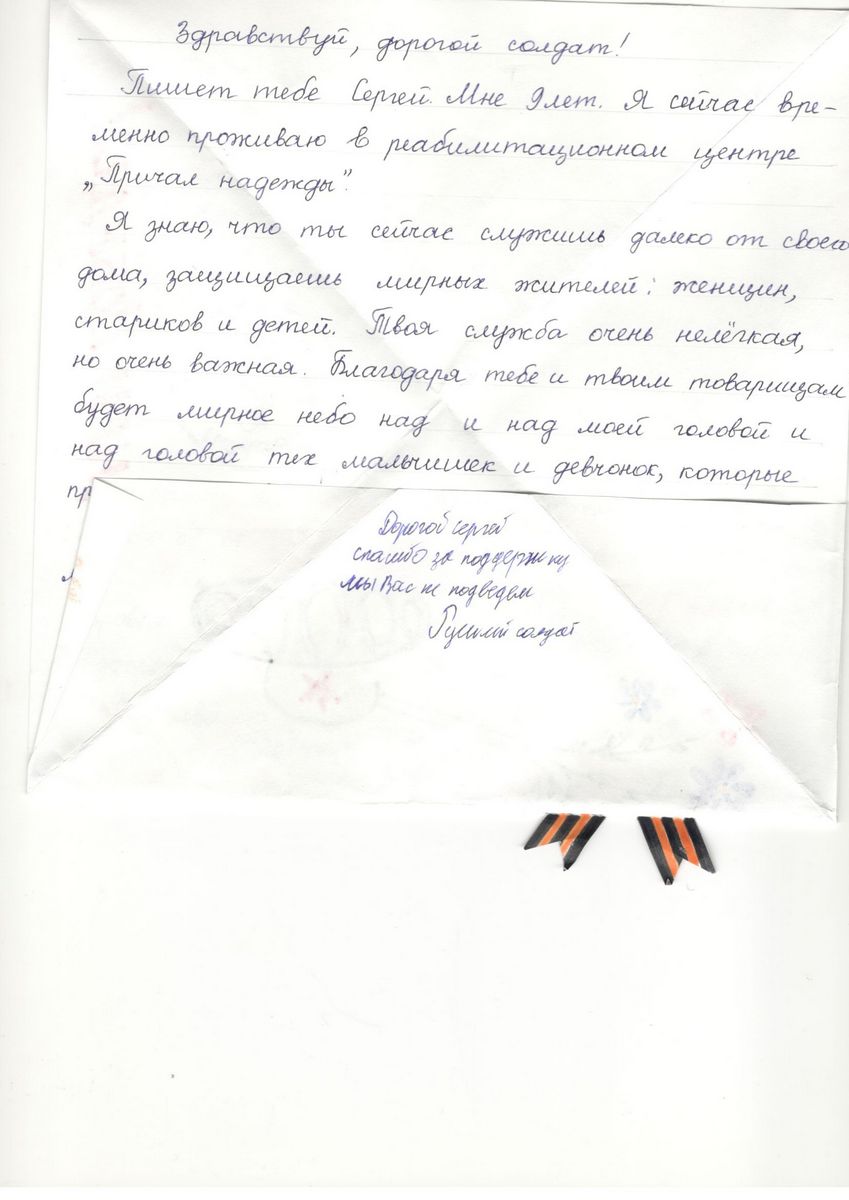 Здравствуй, дорогой солдат!
Пишет тебе Сергей. Мне 9 лет. Я сейчас вре-
менно проживаю в реабилитационном центре
„Причал надежды".
Я знаю, что ты сейчас служишь далеко от своего
дома, защищаешь мирных жителей: женщин,
стариков и детей. Твоя служба очень нелёгкая,
но очень важная. Благодаря тебе и твоим товарищам
будет мирное небо над и над моей головой и
над головой тех мальчишек и девчонок, которые
пр
Дорогой Сергей
спасибо за поддержку
мы Вас не подведем
Русский солдат